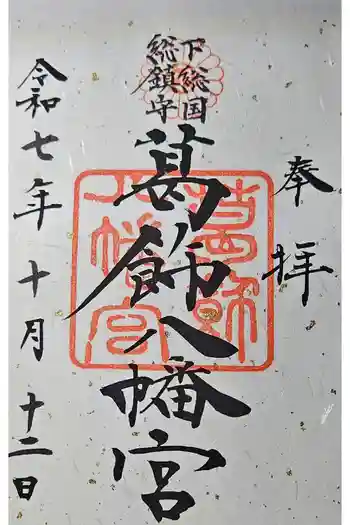 奉拝
下総国
総鎮守
葛飾八幡宮
令和七年十月十二日
葛飾
八幡宮